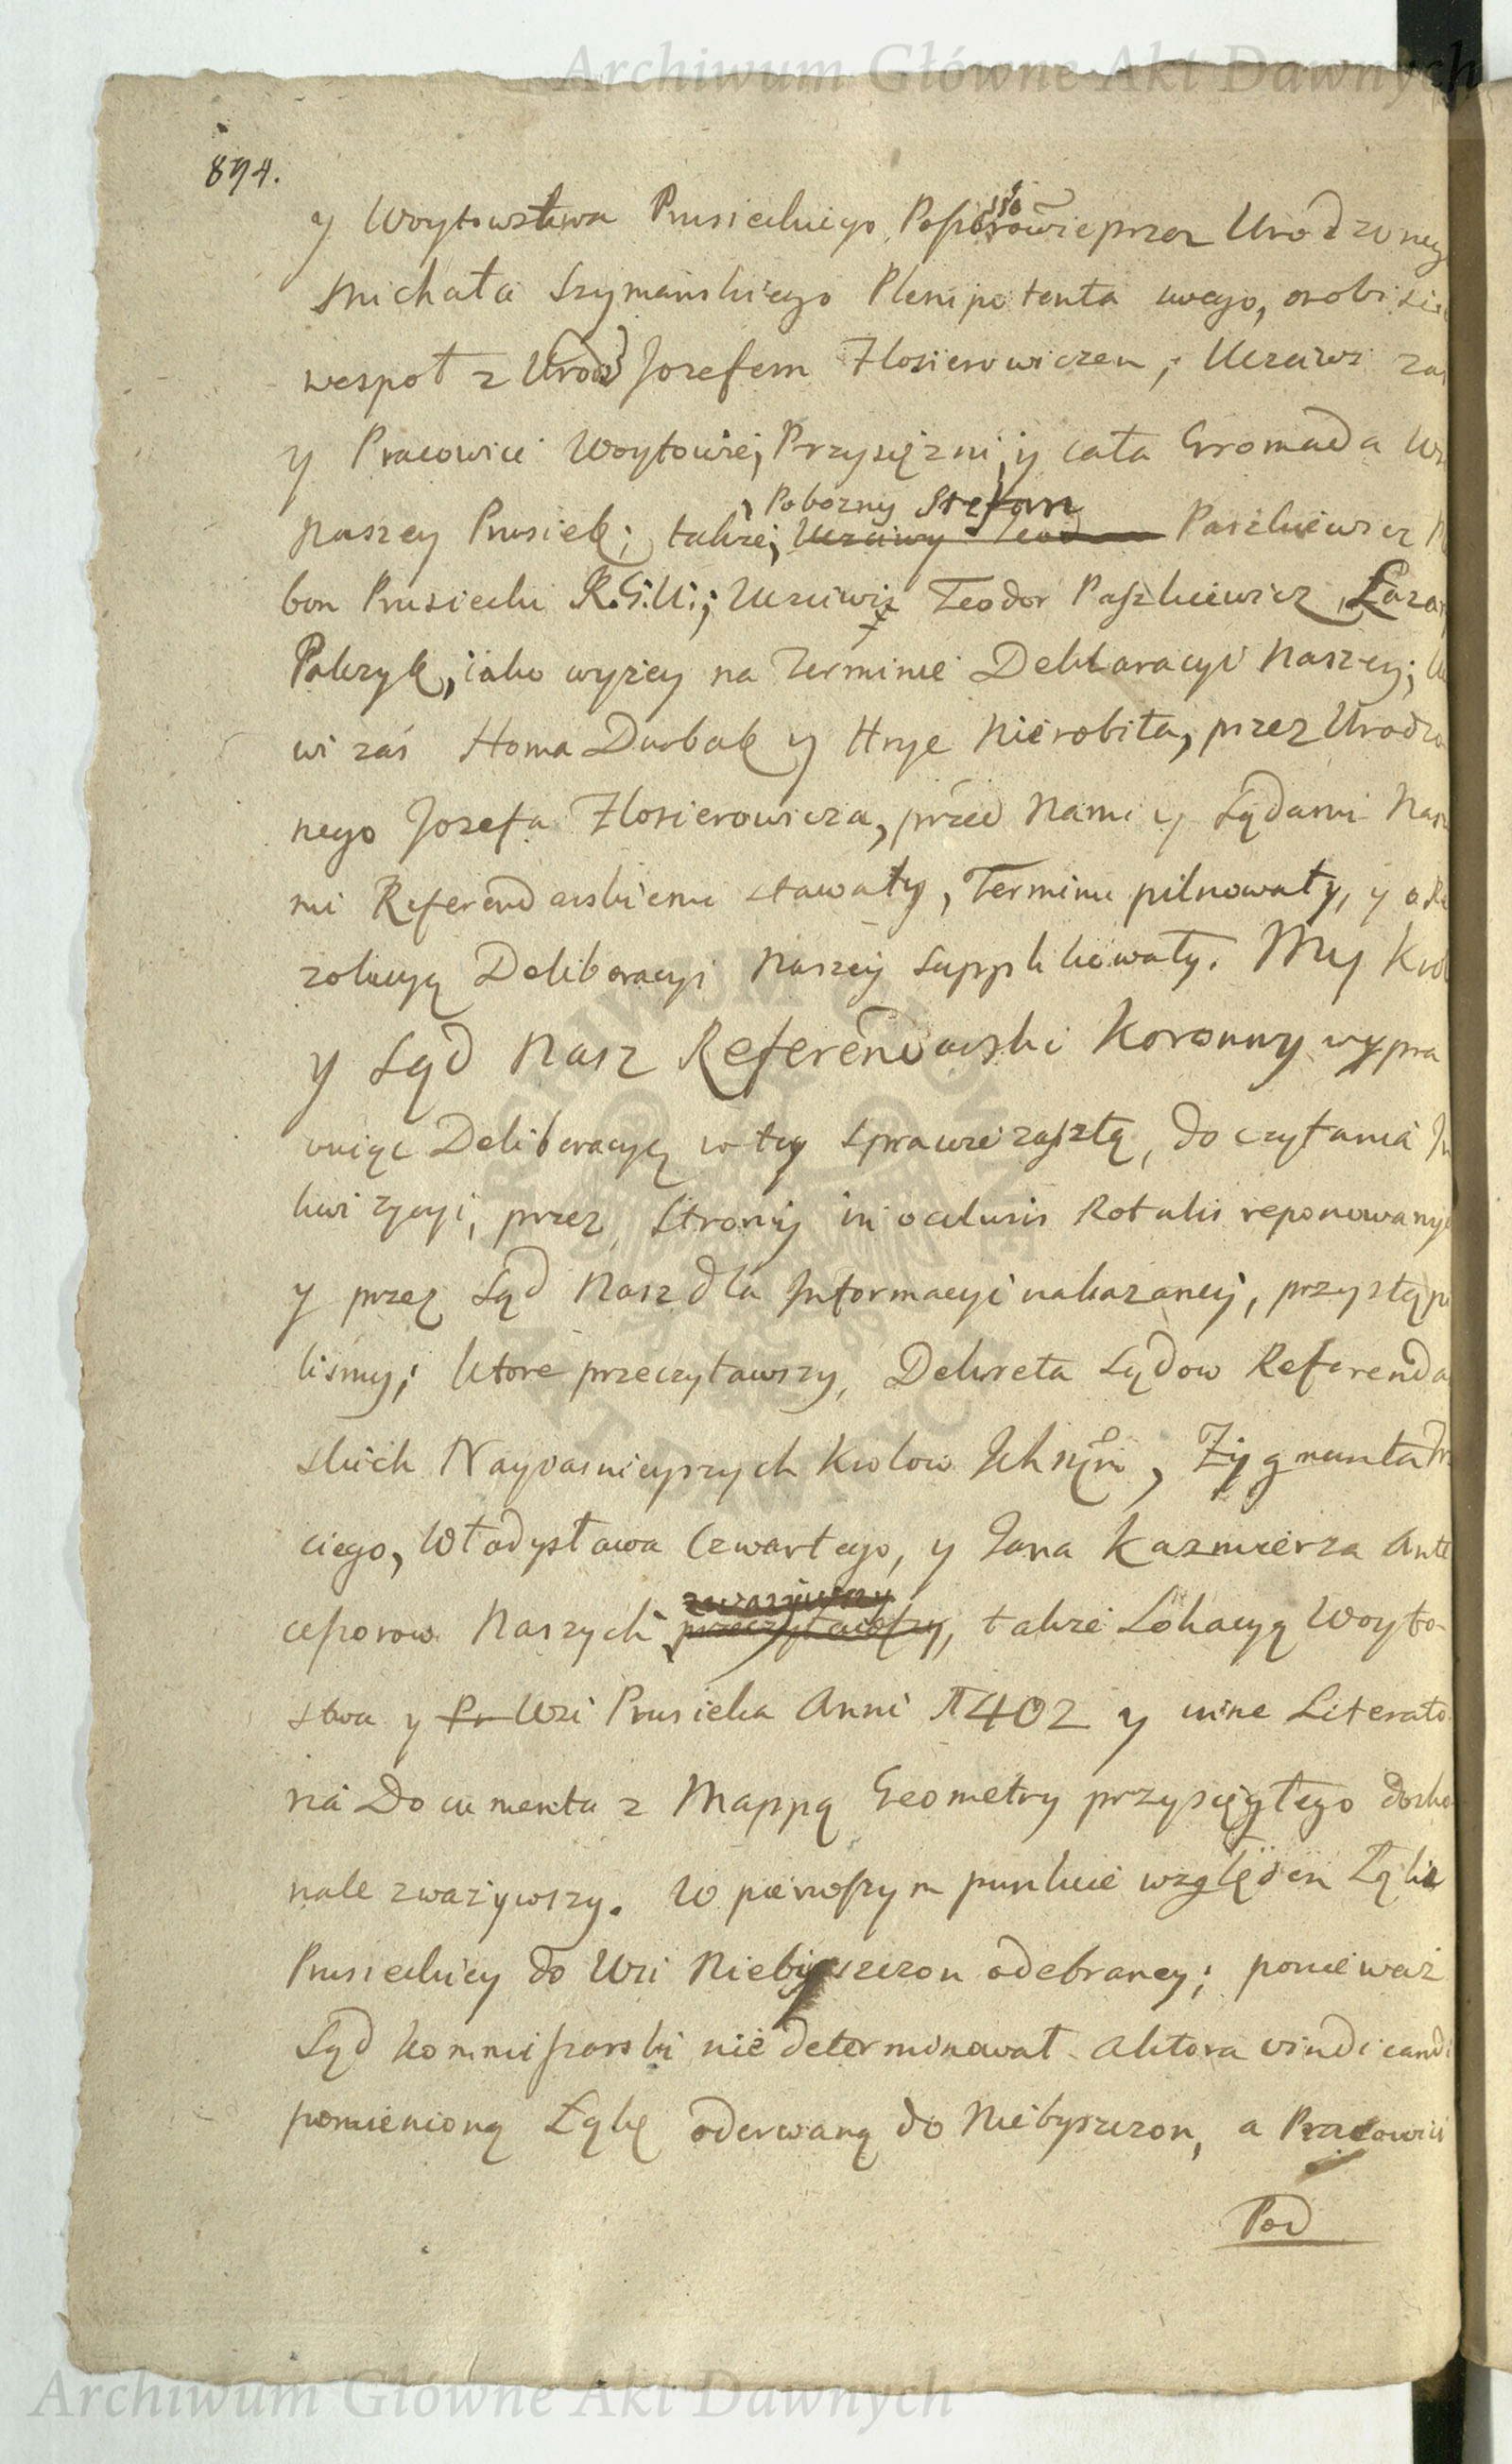 Archiwum Główne Akt Dawnych
894.
y Woytowstwa Prusieckiego, przez Urodzoneg
Michała Szymańskiego Plenipotenta swego, osobiści
wespoł z Urodź Jozefem Złosierowiczem; Uczciwi zaś
y Pracowici Woytowie, Przysięzni, y cała Gromada Ws
Naszey Prusiek; także, Uczciwy Teod Paszkiewicz
Pobozny Stefan
bon Prusiecki R.G.U.; Uczciwi Teodor Paszkiewicz, Łazar
Palczyk, iako wyzey na Terminie Deklaracyi Naszey;
wi zaś Homa Durbak y Hryc Nierobiła, przez Urodzo
nego Jozefa Złosierowicza, przed Nami y Sądami Nasz
mi Referendarskiemi stawały, Terminu pilnowały, y o Re
zolucyą Deliberacyi Naszey supplikowały. My Krol
y Sąd Nasz Referendarski Koronny wypra
wuiąc Deliberacyą w tey sprawie zaszłą, do czytania In
kwizycyi, przez Strony in oclusis Rotulis reponowanych
y przez Sąd Nasz dla Informacyi nakazaney, przystąpi
lismy; ktore przeczytawszy, Dekreta Sądow Referenda
skich Nayiasnieyszych Krolow Ichmciow, Zygmunta Trz
ciego, Władysława Czwartego, y Jana Kazmierza Ante
cessorow Naszych przeczytawszy, także Lokacyą Woyto-
zwazywszy
stwa y Pr Wsi Prusieka Anni 1402 y inne Literato
ria Documenta z Mappą Geometry przysięgłego dosko
nale zważywszy. W pierwszym punkcie względem Łąki
Prusieckiey do Wsi Niebyszczon odebraney; poniewaz
Sąd kommissarski nie determinował Aktora vindicandi
pomienioną Łąkę oderwaną do Niebyszczon, a Pracowici
Pod
Archiwum Główne Akt Dawnych